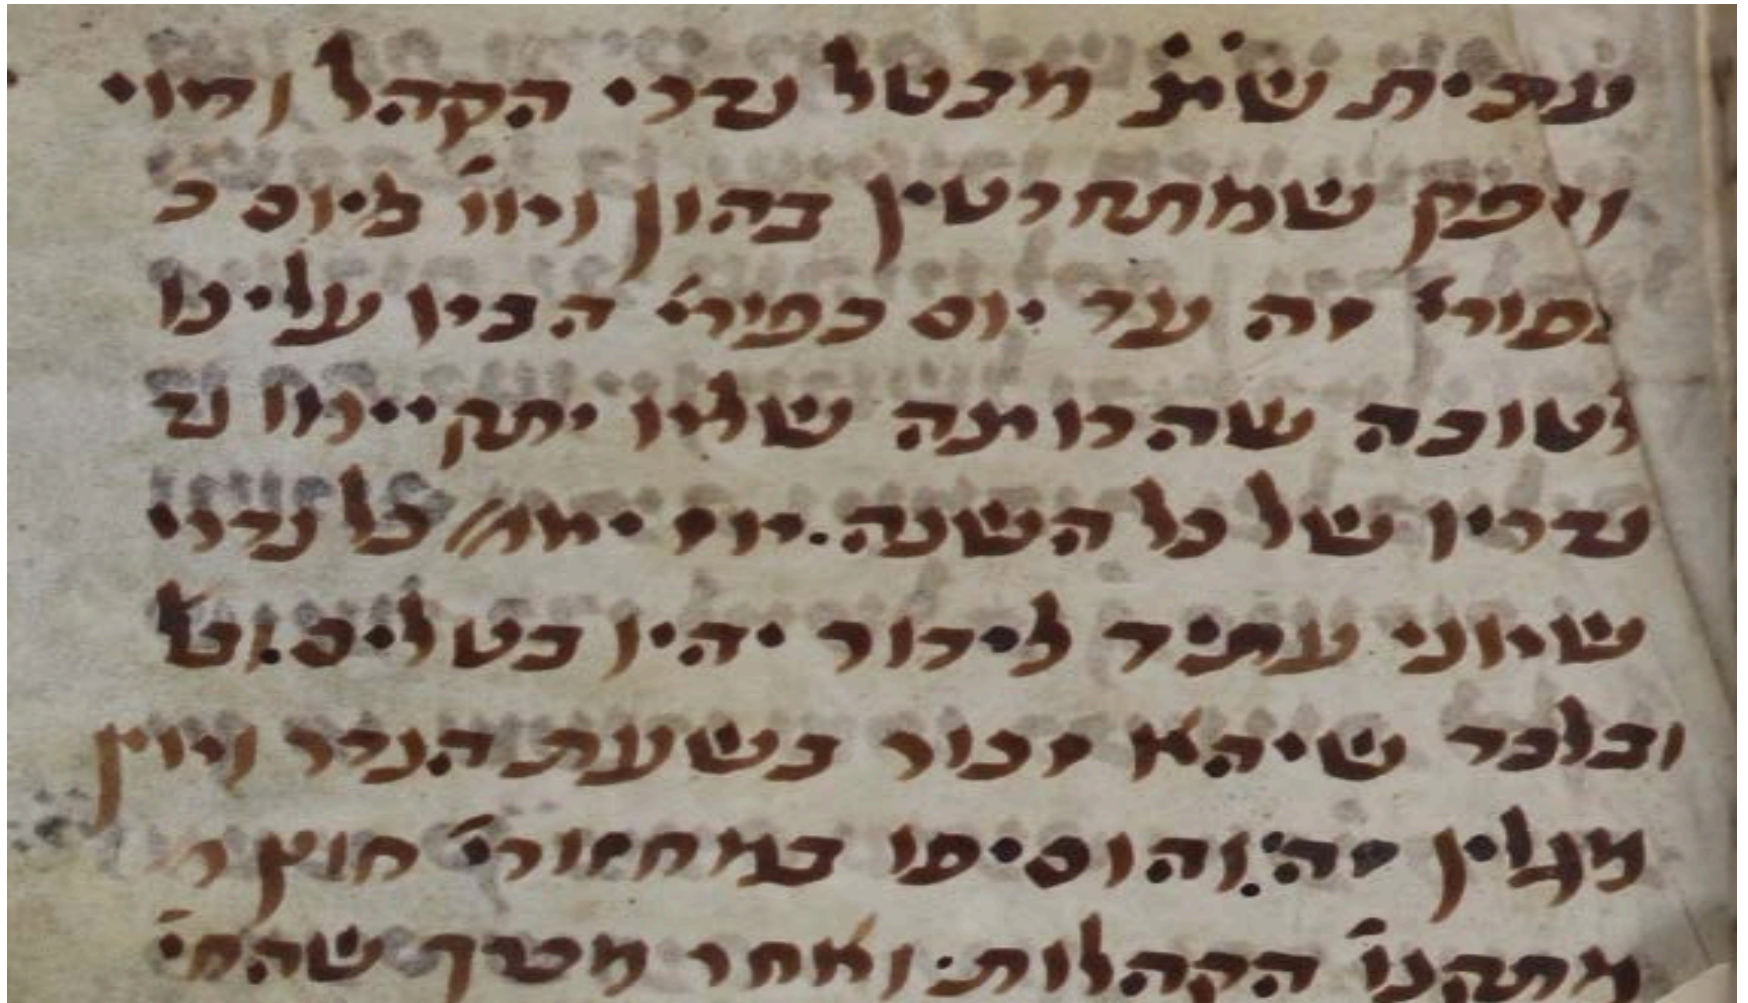 ערבית ש״ת מבטל נדרי הקהל ומוי
ויפק שמתחרטין בהון ויו׳ מיום כ
כפורי׳ זה עד יום כפורי׳ הבא עלינו
לטובה שהרוצה שלא יתקיימו נד
נדרין של כל השנה. כל נדרי
שאני עתיד לידור יהין בטלים.
ובלבד שיהא זכור בשעת הנדר ואין
מגלין זה. והוסיפו במחזורי׳ חוץ
מתקנו׳ הקהלות. ואחר שהחי׳